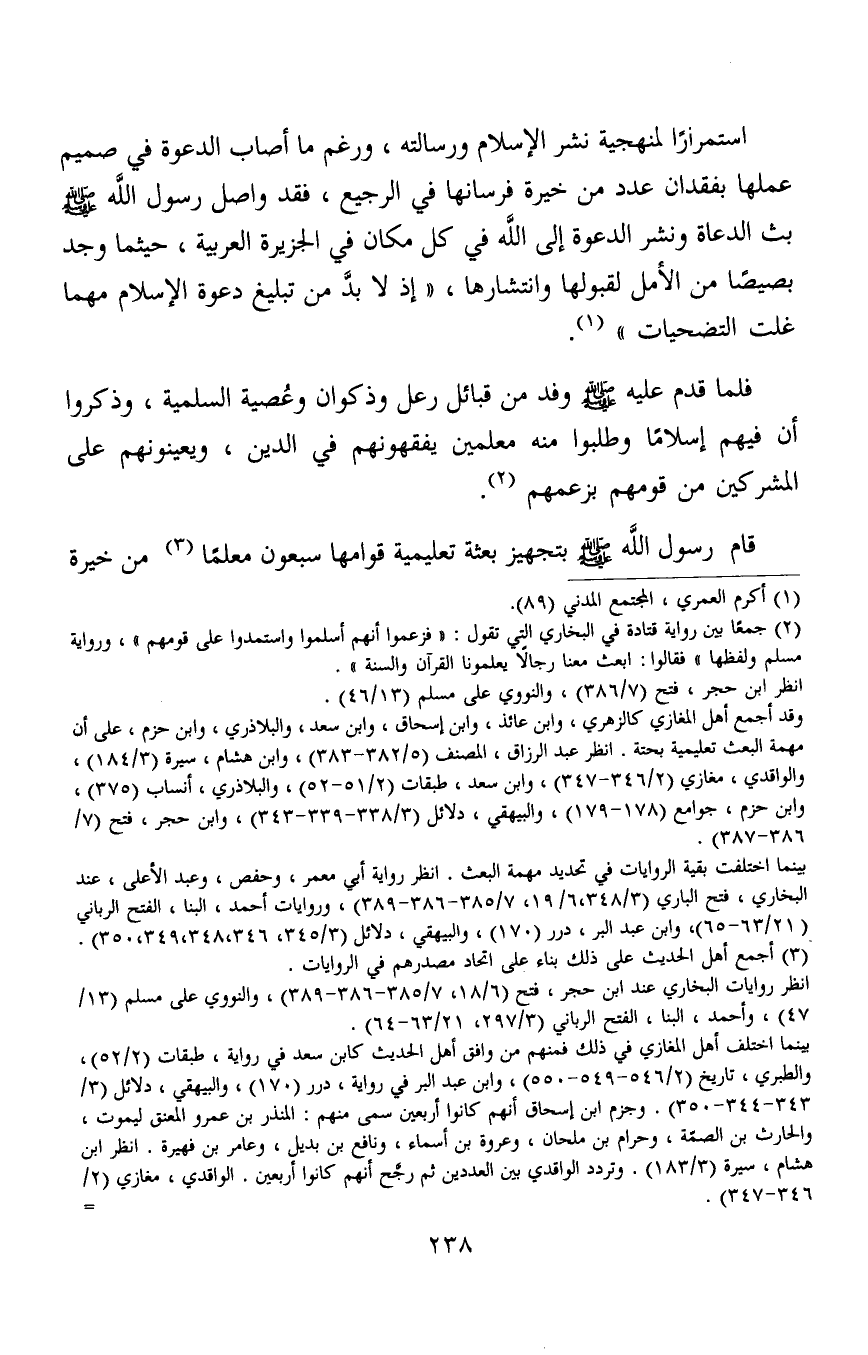 استمرارًا لمنهجية نشر الإسلام ورسالته ، ورغم ما أصاب الدعوة في صميم
عملها بفقدان عدد من خيرة فرسانها في الرجيع ، فقد واصل رسول اللَّه ﷺ
بث الدعاة ونشر الدعوة إلى اللَّه في كل مكان في الجزيرة العربية ، حيثما وجد
بصيصًا من الأمل لقبولها وانتشارها ، « إذ لا بدَّ من تبليغ دعوة الإسلام مهما
غلت التضحيات » (١).
فلما قدم عليه ﷺ وفد من قبائل رعل وذكوان وعُصية السلمية ، وذكروا
أن فيهم إسلامًا وطلبوا منه معلمين يفقهونهم في الدين ، ويعينونهم على
المشركين من قومهم بزعمهم (٢).
قام رسول اللَّه ﷺ بتجهيز بعثة تعليمية قوامها سبعون معلمًا (٣) من خيرة
(١) أكرم العمري ، المجتمع المدني (٨٩).
(٢) جمعًا بين رواية قتادة في البخاري التي تقول : « فزعموا أنهم أسلموا واستمدوا على قومهم » ، ورواية
مسلم ولفظها » فقالوا: ابعث معنا رجالًا يعلمونا القرآن والسنة » .
انظر ابن حجر ، فتح (٣٨٦/٧) ، والنووي على مسلم (٤٦/١٣) .
وقد أجمع أهل المغازي كالزهري ، وابن عائذ ، وابن إسحاق ، وابن سعد، والبلاذري ، وابن حزم ، على أن
مهمة البعث تعليمية بحتة . انظر عبد الرزاق ، المصنف (٣٨٢/٥-٣٨٣) ، وابن هشام ، سيرة (١٨٤/٣) ،
والواقدي ، مغازي (٣٤٦/٢-٣٤٧) ، وابن سعد ، طبقات (٥١/٢-٥٢) ، والبلاذري ، أنساب (٣٧٥) ،
وابن حزم ، جوامع (١٧٨-١٧٩) ، والبيهقي ، دلائل (٣٣٨/٣-٣٣٩-٣٤٣) ، وابن حجر ، فتح (٧/
٣٨٦-٣٨٧) .
بينما اختلفت بقية الروايات في تحديد مهمة البعث . انظر رواية أبي معمر ، وحفص ، وعبد الأعلى ، عند
البخاري ، فتح الباري (٣٤٨/٣،٦/ ١٩، ٣٨٥/٧-٣٨٦-٣٨٩) ، وروايات أحمد ، البنا ، الفتح الرباني
( ٦٣/٢١-٦٥)، وابن عبد البر ، درر (١٧٠) ، والبيهقي ، دلائل (٣٤٥/٣، ٣٤٦،٣٤٨،٣٤٩،٣٥٠) .
(٣) أجمع أهل الحديث على ذلك بناء على اتحاد مصدرهم في الروايات .
انظر روايات البخاري عند ابن حجر ، فتح (١٨/٦، ٣٨٥/٧-٣٨٦-٣٨٩) ، والنووي على مسلم (١٣/
٤٧) ، وأحمد ، البنا ، الفتح الرباني (٢٩٧/٣، ٦٣/٢١-٦٤) .
بينما اختلف أهل المغازي في ذلك فمنهم من وافق أهل الحديث كابن سعد في رواية ، طبقات (٥٢/٢)،
والطبري ، تاريخ (٥٤٦/٢-٥٤٩-٥٥٠) ، وابن عبد البر في رواية ، درر (١٧٠) ، والبيهقي ، دلائل (٣/
٣٤٣-٣٤٤-٣٥٠) . وجزم ابن إسحاق أنهم كانوا أربعين سمى منهم : المنذر بن عمرو المعنق ليموت ،
والحارث بن الصمّة ، وحرام بن ملحان ، وعروة بن أسماء ، ونافع بن بديل ، وعامر بن فهيرة . انظر ابن
هشام ، سيرة (١٨٣/٣) . وتردد الواقدي بين العددين ثم رجَّح أنهم كانوا أربعين . الواقدي ، مغازي (٢/
٣٤٦-٣٤٧) .
=
٢٣٨